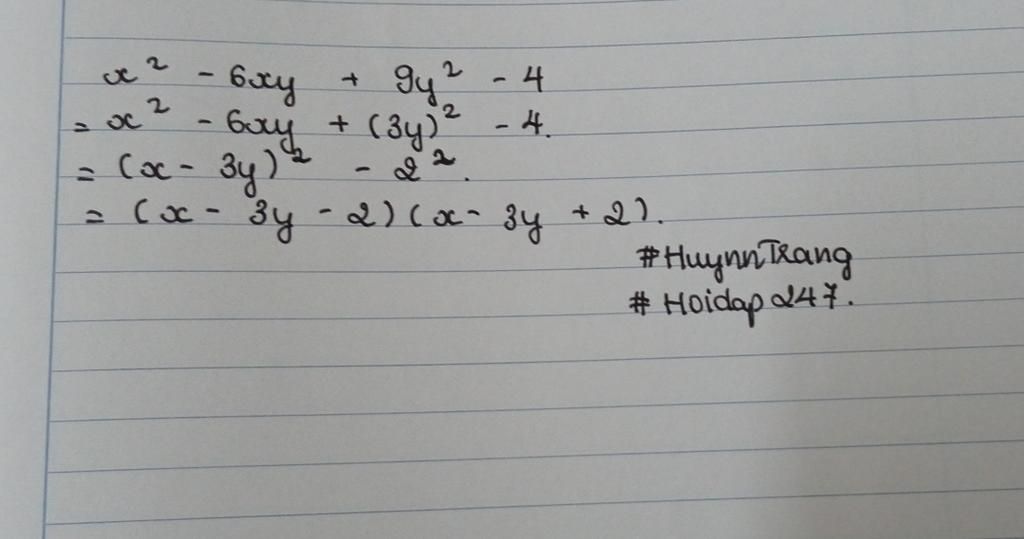 x² - 6xy + 9y² - 4
= x² - 6xy + (3y)² - 4.
= (x - 3y)² - 2².
= (x - 3y - 2)(x - 3y + 2).
#HuynnTrang
# Hoidap247.